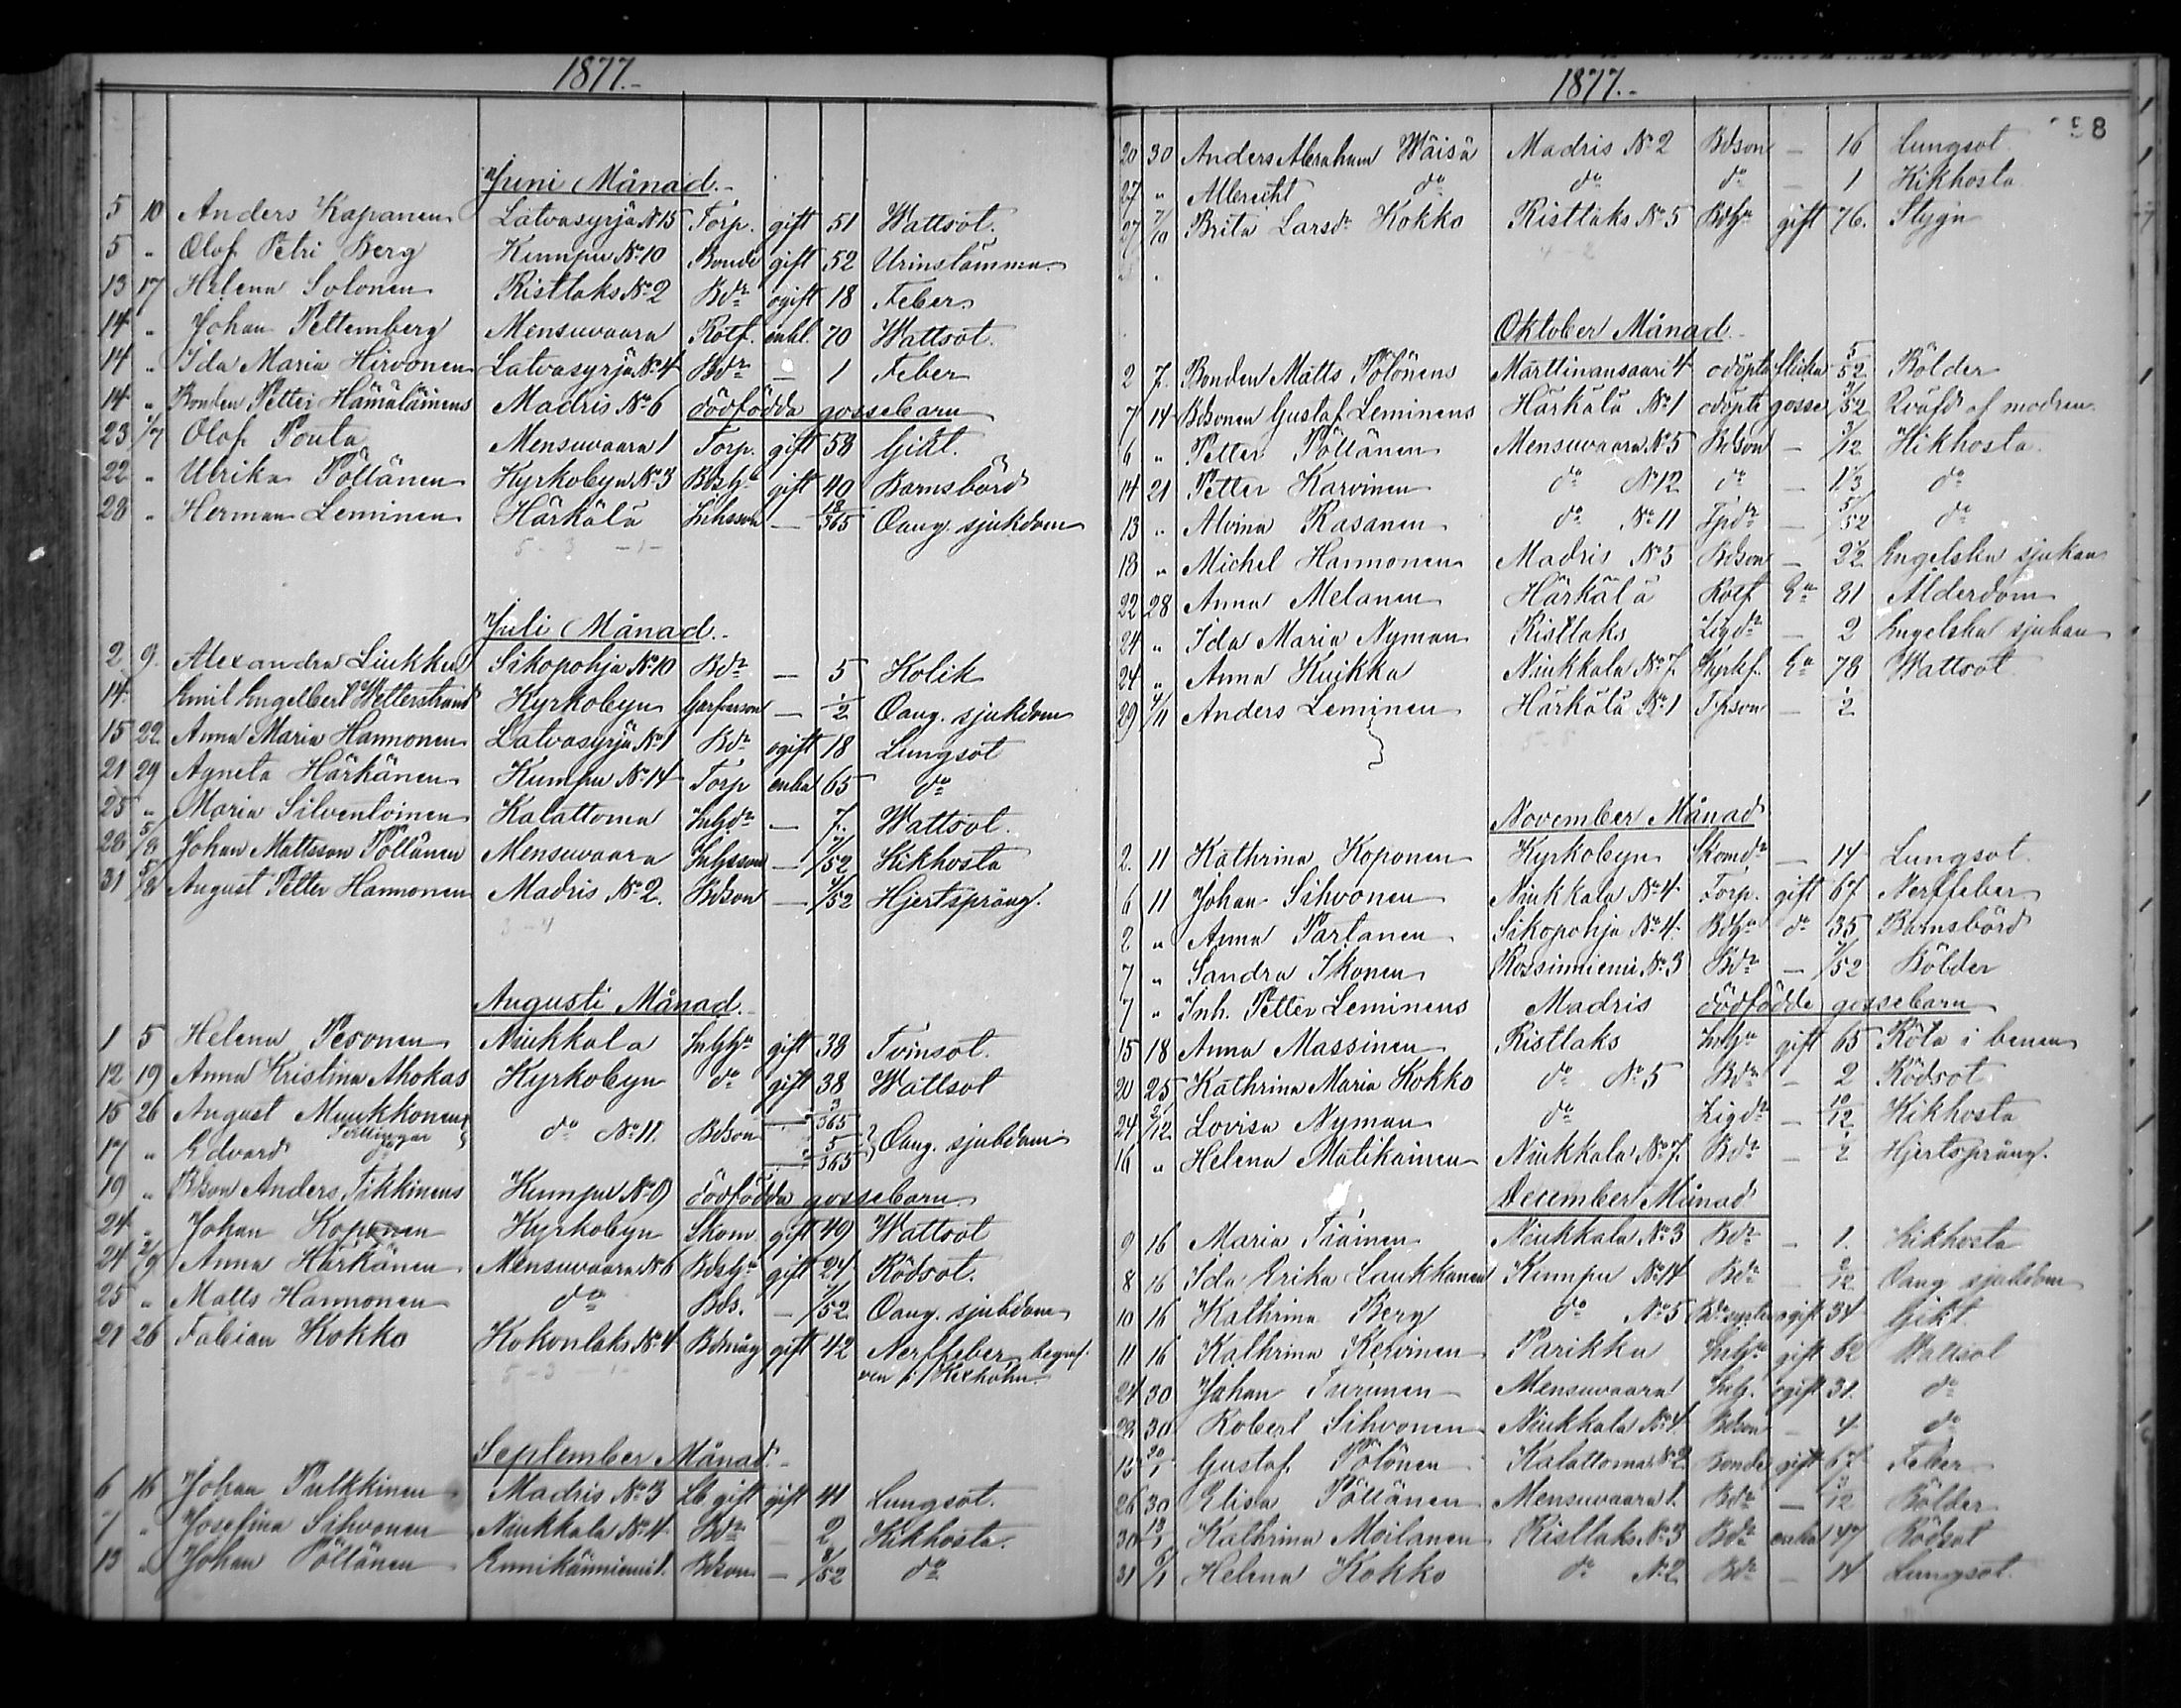 1877.-
Juni Månad.-
5 10 Anders Kapanen Latvasyrjä No 15 Torp. gift 51 Wattsot.
5 " Olof Petri Berg Kumpu No 10 Bonde gift 52 Urinstämma
13 17 Helena Solonen Ristlaks No 2 Bdr ogift 18 Feber
14 " Johan Pettemberg Mensuvaara Rotf. enkl. 70 Wattsot.
14 " Ida Maria Hirvonen Latvasyrjä No 4 Bdr — 1 Feber
14 " Bonden Petter Hämäläinens Madris No 6 dödfödda gossebarn
23 1/7 Olof Pouta Mensuvaara 1 Torp. gift 58 Gikt.
22 " Ulrika Pöllänen Kyrkobyn No 3 Bdshu gift 40 Barnsbörd
28 " Herman Leminen Härkälä Inhsson — 18/365 Oang. sjukdom
5 - 3 -1-
Juli Månad.-
2 9. Alexandra Liukku Sikopohja No 10 Bdr — 5 Kolik
14 Emil Engelbert Wetterstrand Kyrkobyn Garfvarson — 1/2 Oang. sjukdom
15 22 Anna Maria Hannonen Latvasyrjä No 1 Bdr ogift 18 Lungsot
21 29 Agneta Härkänen Kumpu No 14 Torp enka 65 do
25 " Maria Silventoinen Kalattoma Inhdr — 7. Wattsot.
28 5/8 Johan Mattsson Pöllänen Mensuvaara Inhsson — 7/52 Kikhosta
31 5/8 August Petter Hannonen Madris No 2. Bdson — 1/52 Hjertsprång.
3 - 4
Augusti Månad.-
1 5 Helena Pesonen Niukkala Inhhu gift 38 Tvinsot.
12 19 Anna Kristina Ahokas Kyrkobyn do gift 38 Wattsot
15 26 August Muukkonen do No 11. Bdson — 3/365
17 " Edvard do Tvillingar " — 5/365 Oang. sjukdom
19 " Bdson Anders Tikkinens Kumpu No 9 dödfödda gossebarn
24 " Johan Koponen Kyrkobyn Skom. gift 49 Wattsot
24 2/9 Anna Härkänen Mensuvaara No 6 Bdshu gift 24 Rödsot.
25 " Matts Hannonen do Bds. — 1/52 Oang. sjukdom
21 26 Fabian Kokko Kokonlaks No 4 Bdmåg gift 42 Nerffeber begraf-
ven i Kexholm
5 - 3 - 1-
September Månad.-
6 16 Johan Pulkkinen Madris No 3 Lb. gift gift 41 Lungsot.
7 " Josefina Sihvonen Niukkala No 4 Bdr — 2 Kikhosta.
13 " Johan Pöllänen Ennikänniemi 1. Bdson — 8/52 do
1877.-
58
20 30 Anders Abraham Wäisä Madris No 2 Bdson — 16 Lungsot.
27 " Albrecht do do do — 1 Kikhosta
27 7/10 Brita Larsdr Kokko Ristlaks No 5 Bdhu gift 76. Stygn
4 - 2
Oktober Månad.-
2 7. Bonden Matts Pölönens Marttinansaari 4 odöpta flicka 5/52 Bölder
7 14 Bdsonen Gustaf Leminens Härkälä No 1 odöpte gosse 1/52 Qväfd af modren.
6 " Petter Pöllänen Mensuvaara No 5 Bdson — 3/12 Kikhosta.
14 21 Petter Karvinen do No 12 do — 1 1/3 do
13 " Alvina Rasanen do No 11 Tpdr — 5/52 do
18 " Michel Hannonen Madris No 5 Bdson — 2 1/2 Engelska sjukan
22 28 Anna Melanen Härkälä Rotf Ea 81 Ålderdom
24 " Ida Maria Nyman Ristlaks Ligdr — 2 Engelska sjukan
24 " Anna Kuikka Niukkala No 7. Kyrkf. Ea 78 Wattsot
29 4/11 Anders Leminen Härkälä No 1 Tpson — 1/2
5 - 5
November Månad
2. 11 Kathrina Koponen Kyrkobyn Skomdr — 14 Lungsot.
6 11 Johan Sihvonen Niukkala No 4 Torp. gift 67 Nerffeber
2 " Anna Partanen Sikopohja No 4. Bdhu do 35 Barnsbörd
7 " Sandra Ikonen Rossinniemi No 3 Bdr — 1/52 Bölder
7 " Inh. Petter Leminens Madris dödfödde gossebarn
15 18 Anna Massinen Ristlaks Inhhu gift 65 Röta i benen
20 25 Kathrina Maria Kokko do No 5 Bdr — 2 Rödsot
24 2/12 Lovisa Nyman do Ligdr — 10/12 Kikhosta
16 " Helena Matikainen Niukkala No 7. Bdr — 1/2 Hjertsprång.
December Månad
9 16 Maria Tiainen Niukkala No 3 Bdr — 1. Kikhosta
8 16 Ida Erika Laukkanen Kumpu No 14 Bdr — 2/12 Oang sjukdom
10 16 Kathrina Berg do No 5 Bde syster ogift 34 Gikt.
11 16 Kathrina Kervinen Parikka Inhhu gift 62 Wattsot
24 30 Johan Turunen Mensuvaara Inh. ogift 31. do
29 30 Robert Sihvonen Niukkala No 4. Bdson — 4 do
15 20/1 Gustaf Pölönen Kalattoma No 2 Bonde gift 67 Feber
26 30 Elisa Pöllänen Mensuvaara 1. Bdr — 3/12 Bölder
30 13/1 Kathrina Moilanen Ristlaks No 3 Bdr enka 47 Rödsot
31 6/1 Helena Kokko do No 2 Bdr — 14 Lungsot.